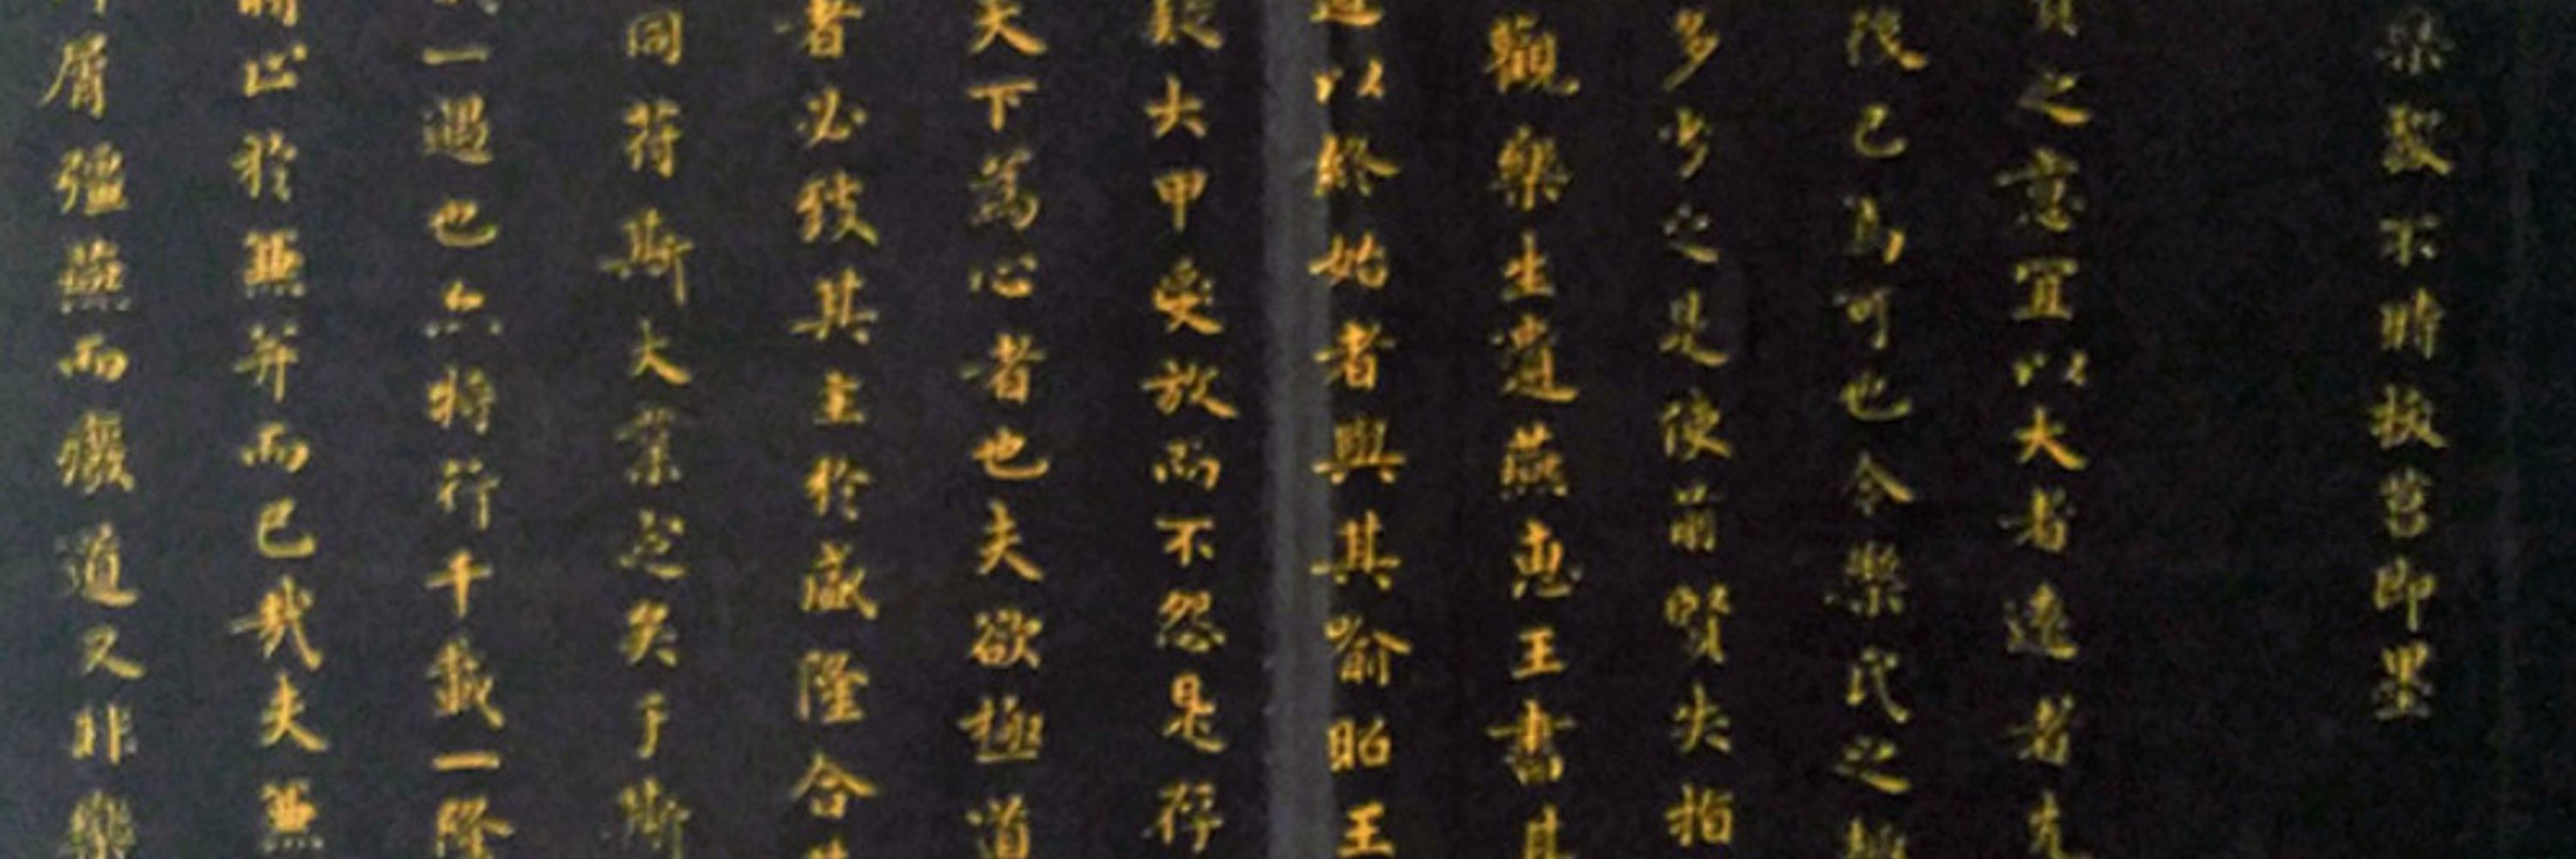 樂毅不時拔莒即墨
之意宜以大者遠者先
後已焉可也今樂氏之趣
多少之是使前賢失指
觀樂生遺燕惠王書其
道以終始者與其喻昭王
大甲受放而不怨是存
天下為心者也夫欲極道
者必致其主於盛隆合其
同苻斯大業定矣于斯
一遇也亦將行千載一隆
時止於兼并而已哉夫兼
屑彊燕而癈道又非樂